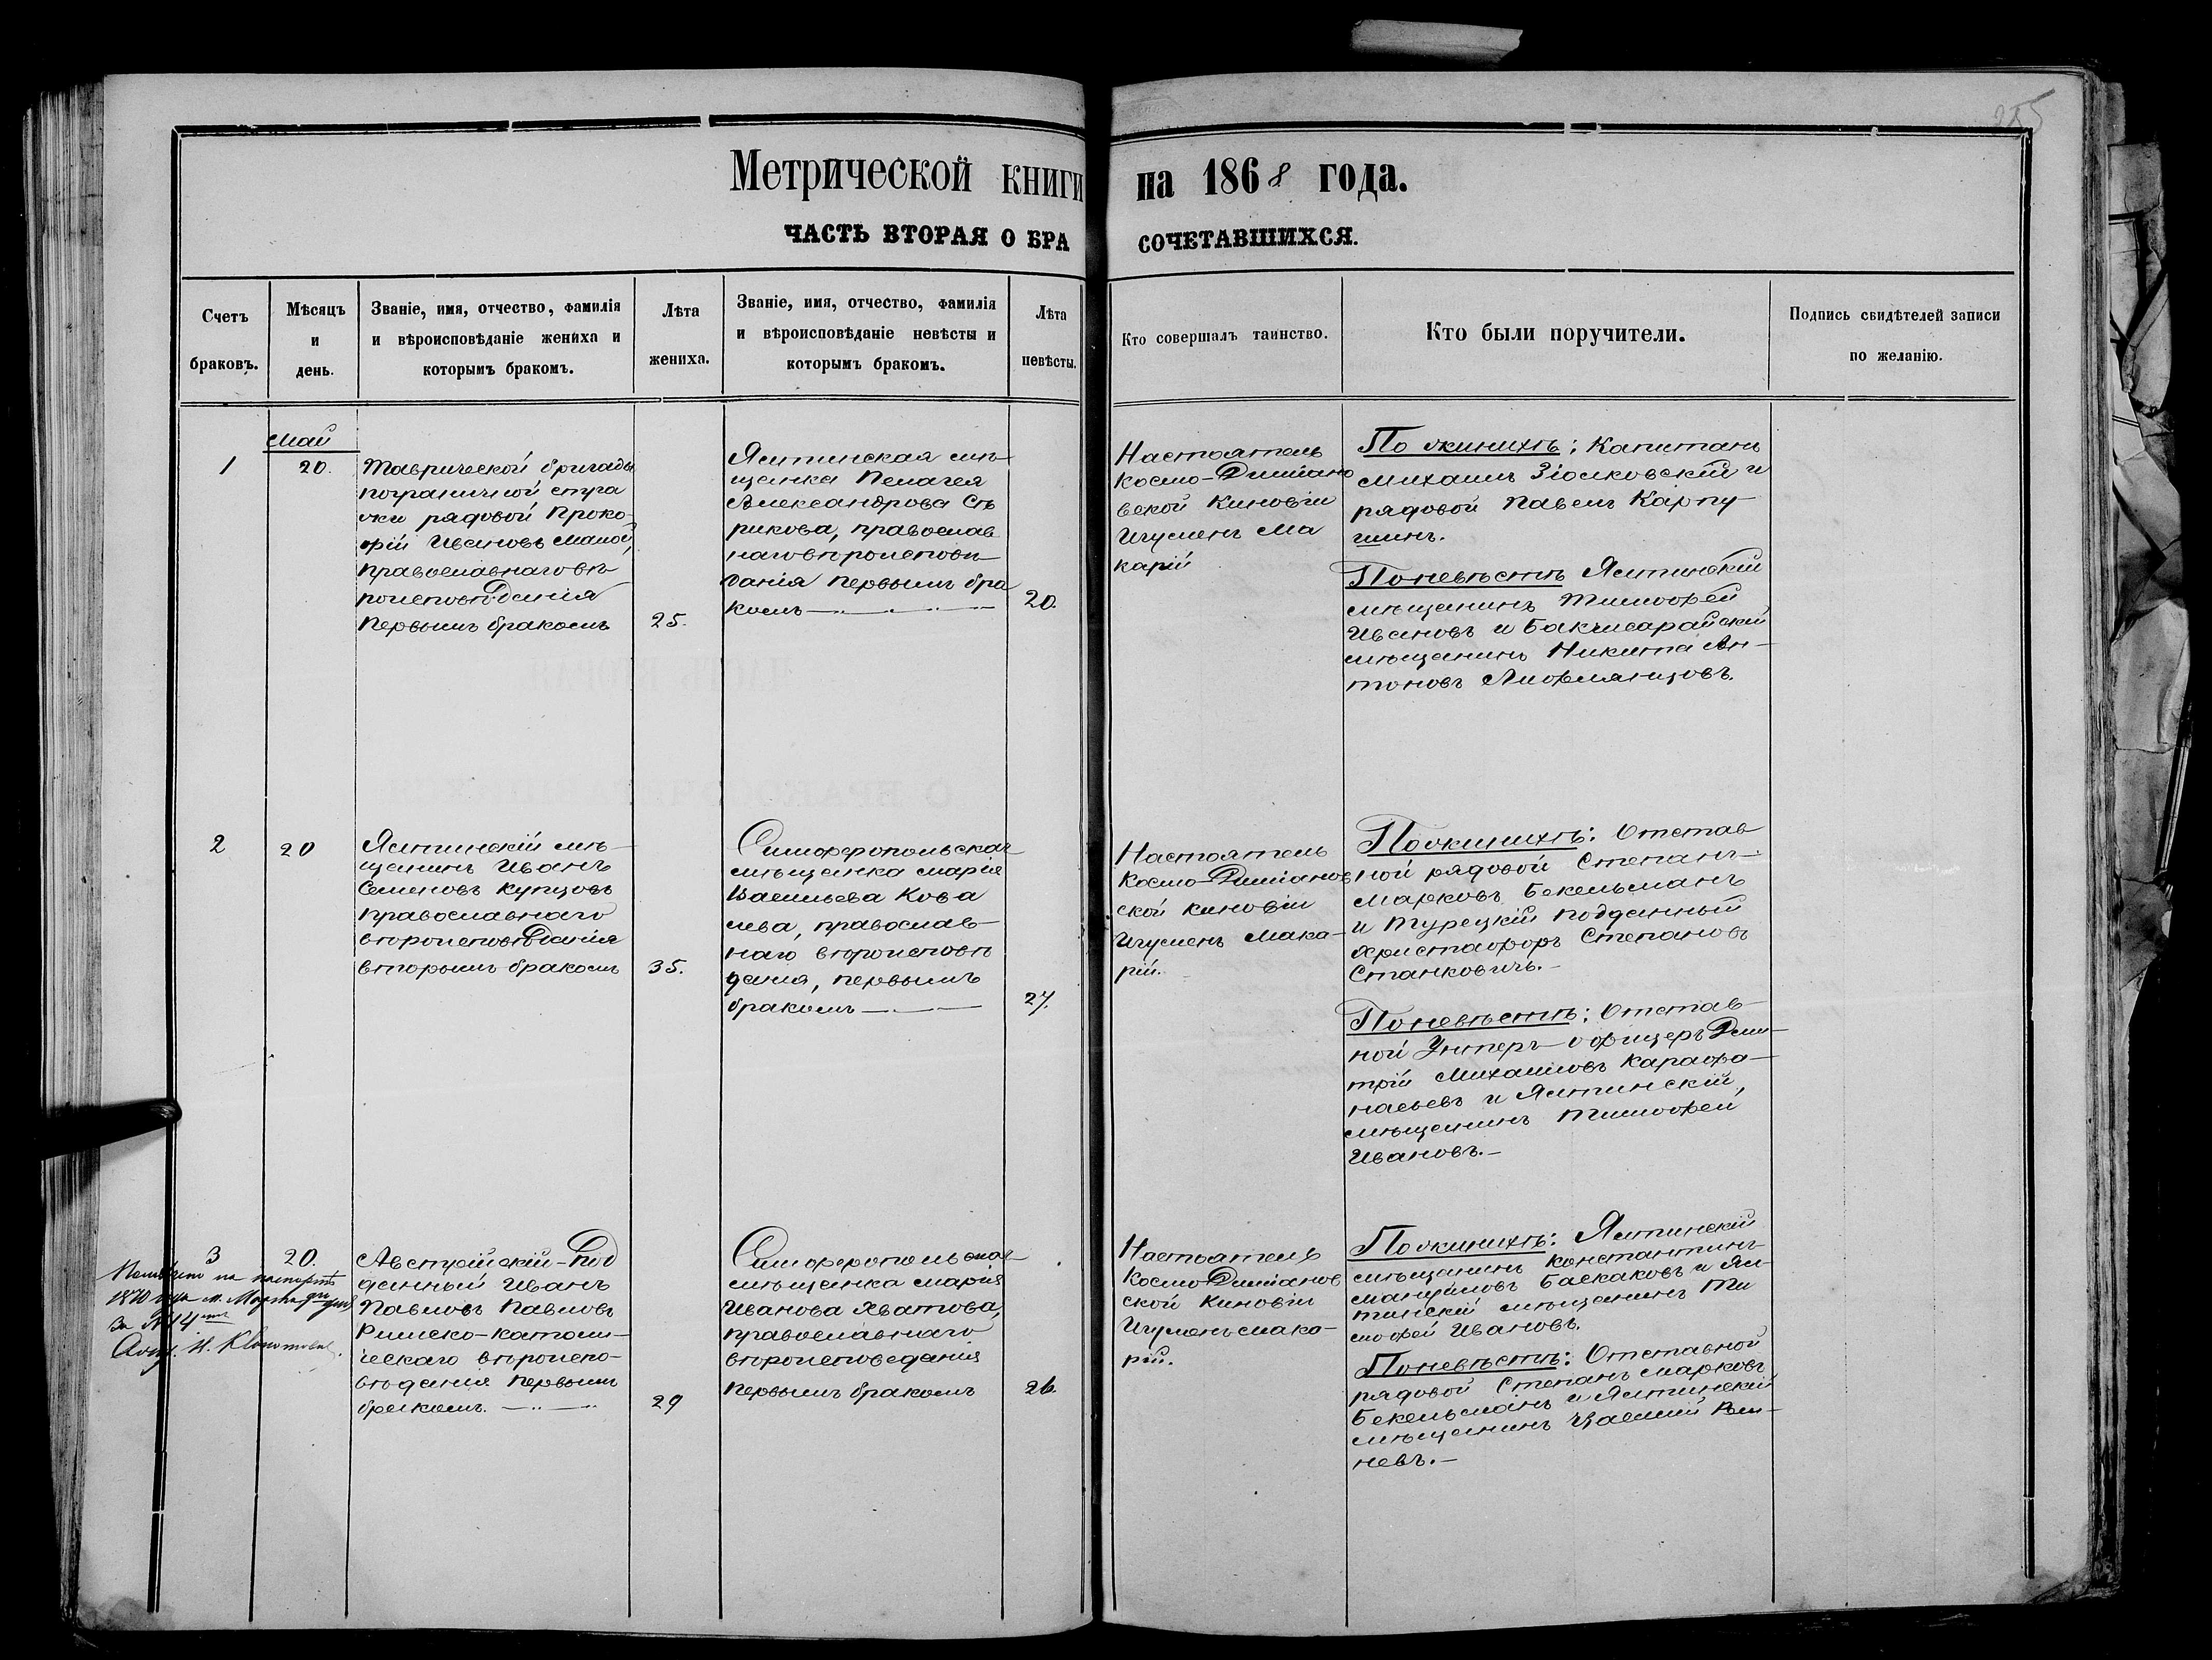 Метрической книги на 1868 года.
ЧАСТЬ ВТОРАЯ О БРА СОЧЕТАВШИХСЯ.
Счетъ
браковъ.
Мѣсяцъ
и
день.
Званіе, имя, отчество, фамилія
и вѣроисповѣданіе жениха и
которымъ бракомъ.
Лѣта
жениха.
Званіе, имя, отчество, фамилія
и вѣроисповѣданіе невѣсты и
которымъ бракомъ.
Лѣта
невѣсты.
Кто совершалъ таинство.
Кто были поручители.
Подпись свидѣтелей записи
по желанію.
1
Май
20.
Таврической бригады
пограничной стра
жи рядовой Проко-
фій Ивановъ Малой,
православнаго вѣ-
роисповѣданія
первымъ бракомъ
25.
Ялтинская мѣ-
щанка Пелагея
Александрова Сѣ
рикова, православ
наго вѣроисповѣ-
данія первымъ бра
комъ
20.
Настоятель
Космо-Даміано
вской Киновіи
Игуменъ Ма
карій
По женихѣ: Капитанъ
Михаилъ Зіолковскій и
рядовой Павелъ Карпу-
шинъ.
По невѣстѣ Ялтинскій
мѣщанинъ Тимофей
Ивановъ и Бакчисарайскій
мѣщанинъ Никита Ан-
тоновъ
2
20
Ялтинскій мѣ-
щанинъ Иванъ
Семеновъ Купцовъ
православнаго
вѣроисповѣданія
вторымъ бракомъ
35.
Симферопольская
мѣщанка Марія
Васильева Кова
лева, православ-
наго вѣроисповѣ
данія, первымъ
бракомъ
27.
Настоятель
Космо-Даміанов
ской киновіи
Игуменъ Мака-
рій.
По женихѣ: Отстав
ной рядовой Степанъ
Марковъ Бекельманъ
и Турецкій подданный
Христофоръ Степановъ
Станковичъ.
По невѣстѣ: Отстав-
ной Унтеръ-офицеръ Дми-
трій Михаиловъ Карафа-
насьевъ и Ялтинскій,
мѣщанинъ Тимофей
Ивановъ.
3
20.
Австрійскій под
данный Иванъ
Павловъ Павловъ
Римско-католи-
ческаго вѣроиспо-
вѣданія первымъ
бракомъ.
29
Симферопольская
мѣщанка Марія
Иванова Хватова,
православнаго
вѣроисповедания
первымъ бракомъ
26.
Настоятель
Космо Даміанов
ской Киновіи
Игуменъ Мака-
рій.
По женихѣ: Ялтинскій
мѣщанинъ Константинъ
Мануйловъ Баскаковъ и Ял-
тинскій мѣщанинъ Ти
мофей Ивановъ.
По невѣстѣ: Отставной
рядовой Степанъ Марковъ
Бекельманъ и Ялтинскій
мѣщанинъ
невъ.
1870 года м. Марта
за № 14